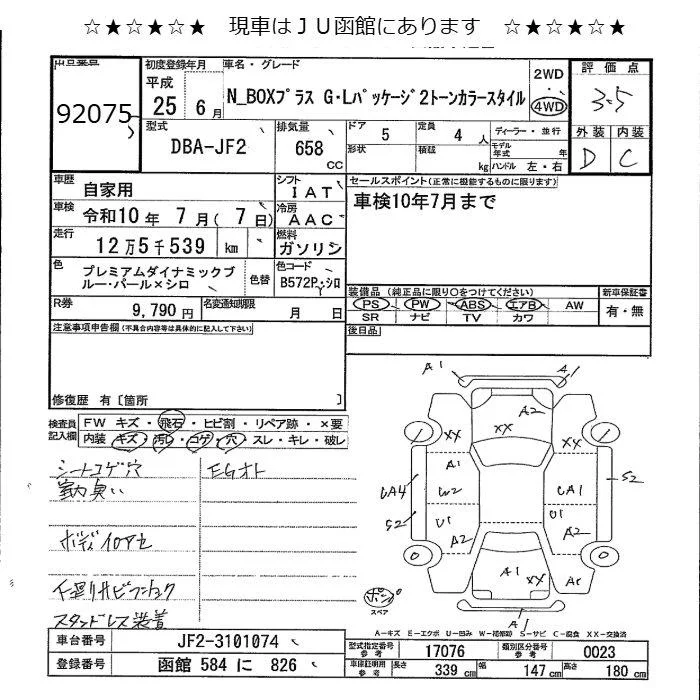 ☆★☆★☆★ 現車はJU函館にあります ☆★☆★☆★
92075
初度登録年月
平成
25 6月
車名・グレード
N_BOXプラス G・Lパッケージ2トンカラースタイル
2WD
4WD
評価点
3.5
外装 内装
D C
型式
DBA-JF2
排気量
658
CC
ドア 5
定員 4 人
形状
積載
kg
ディーラー・並行
モデル年式 年
ハンドル 左・右
車歴
自家用
シフト
IAT
セールスポイント(正常に機能するものに限ります)
車検10年7月まで
車検
令和10年 7月( 7日)
冷房
AAC
走行
12万5千539 km
燃料
ガソリン
色
プレミアムダイナミックブ
ルー・パール×シロ
色替
色コード
B572P,シロ
R券
9,790円
名変通知期限
月 日
装備品(純正品に限り○をつけてください)
PS PW ABS エアB AW
SR ナビ TV カワ
新車保証書
有・無
後日品
注意事項申告欄(不具合内容等は具体的に記入して下さい)
修復歴 有〔箇所 〕
検査員
記入欄
FW キズ・飛石・ヒビ割・リペア跡・×要
内装 キズ・汚レ・コゲ・穴・スレ・キレ・破レ
シートコゲ穴
EGオト
室内臭い
ボディイロアセ
下廻リサビフショク
スタッドレス装着
A1 A1
A2
XX XX XX
A1
UA4 W2 UA1 S2
S2 U1 U1
A2 A2
A1 XX
A1
ポン
スペア
A1
A－キズ E－エクボ U－凹み W－補修跡 S－サビ C－腐食 XX－交換済
車台番号
JF2-3101074
登録番号
函館 584 に 826
型式指定番号
参考
17076
類別区分番号
参考
0023
車庫証明用
参考
長さ
339 cm
幅
147 cm
高さ
180 cm